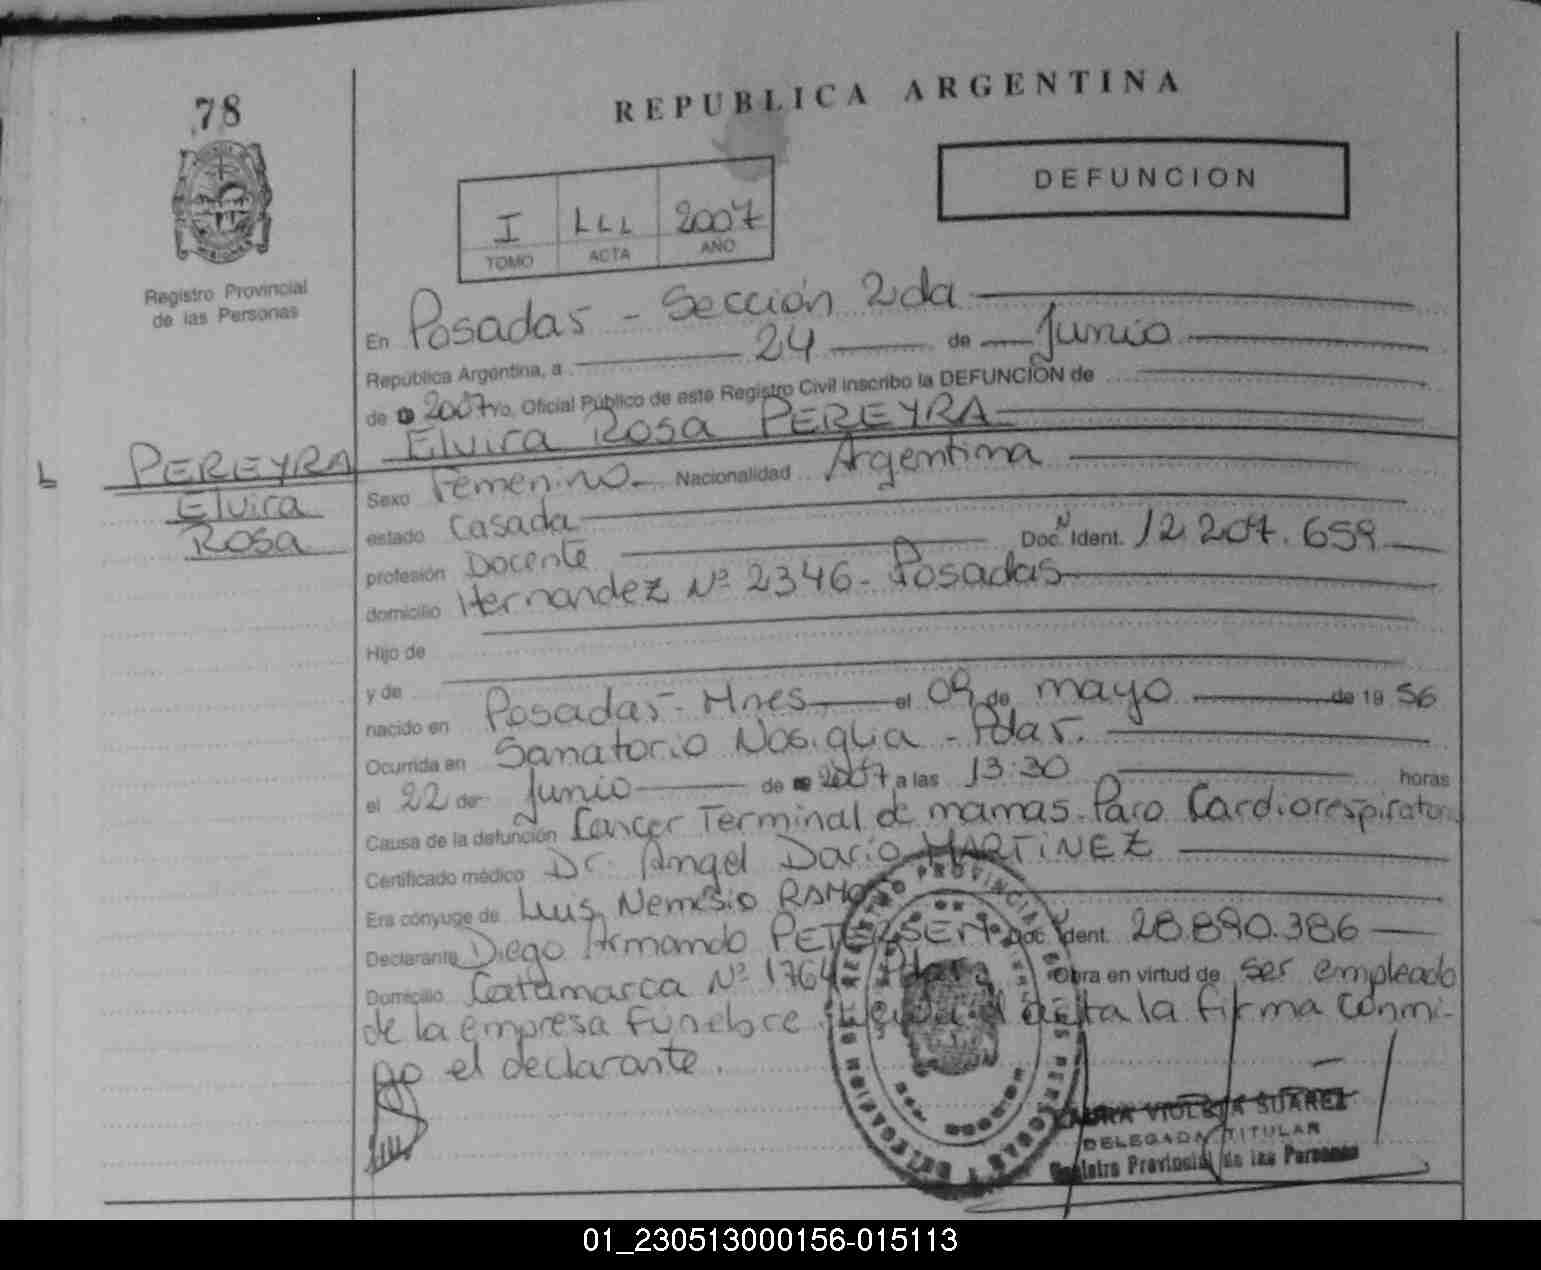 78
REPUBLICA ARGENTINA
DEFUNCION
I LLL 2007
TOMO ACTA AÑO
Registro Provincial
de las Personas
En Posadas - Sección 2da
República Argentina, a 24 de Junio
de 2007 yo, Oficial Público de este Registro Civil inscribo la DEFUNCION de
Elvira Rosa PEREYRA
PEREYRA
Elvira
Rosa
Sexo Femenino Nacionalidad Argentina
estado Casada
profesión Docente Doc. N Ident. 12.207.659
domicilio Hernandez Nº 2346 - Posadas
Hijo de
y de
nacido en Posadas - Mnes el 09 de mayo de 1956
Ocurrida en Sanatorio Nosiglia - Pdas.
el 22 de Junio de 2007 a las 13:30 horas
Causa de la defunción Cancer Terminal de mamas. Paro Cardiorespiratorio
Certificado médico Dr. Angel Dario MARTINEZ
Era cónyuge de Luis Nemesio RAMOS
Declarante Diego Armando PETERSEN Doc. N Ident. 28.890.386
Domicilio Catamarca Nº 1764 Pdas Obra en virtud de ser empleado
de la empresa Fúnebre. Leida el acta la firma conmi-
go el declarante.
LAURA VIOLETA SUAREZ
DELEGADA TITULAR
Registro Provincial de las Personas
01_230513000156-015113